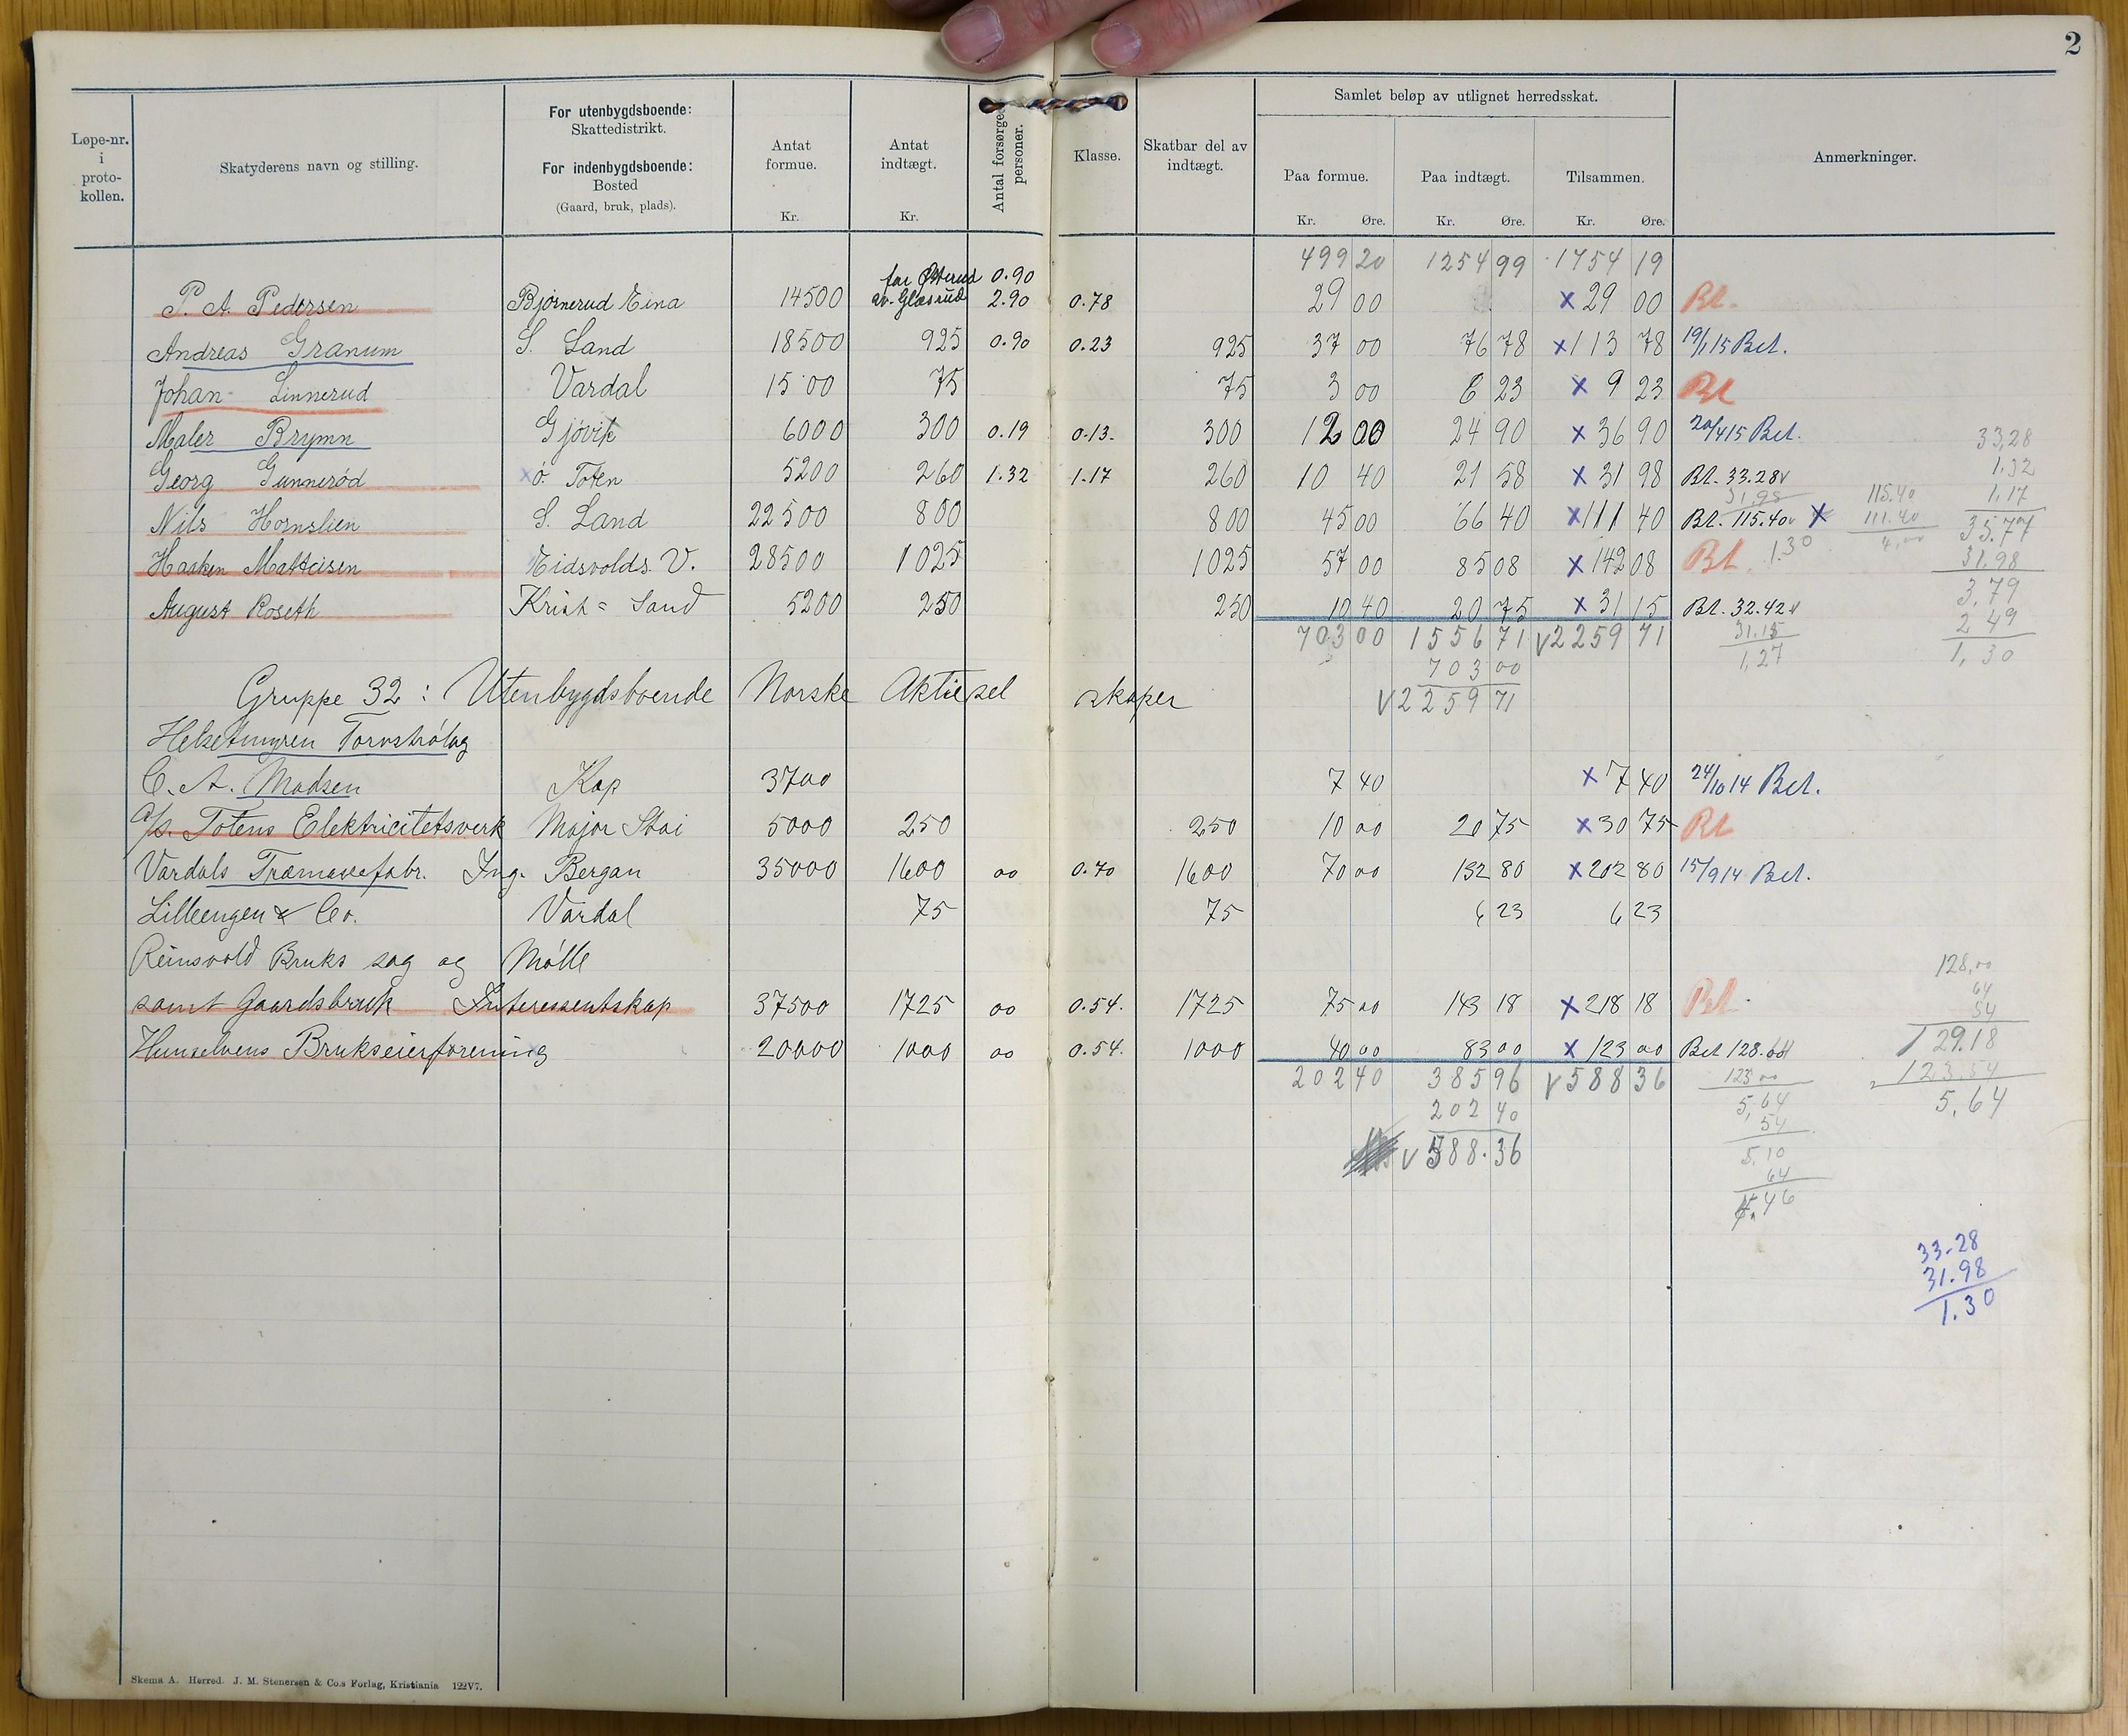 2
Løpe-nr. i proto-kollen.
Skatyderens navn og stilling.
For utenbygdsboende: Skattedistrikt.
For indenbygdsboende: Bosted (Gaard, bruk, plads).
Antat formue. Kr.
Antat indtægt. Kr.
Antal forsørgede personer.
Klasse.
Skatbar del av indtægt.
Samlet beløp av utlignet herredsskat.
Paa formue. Kr. Øre.
Paa indtægt. Kr. Øre.
Tilsammen. Kr. Øre.
Anmerkninger.
499 20 1254 99 1754 19
for Østerud 0.90
P. A. Pedersen Bjørnerud Eina 14500 av. Glæsrud 2.90 0.78 29 00 x 29 00 Bt.
Andreas Granum S. Land 18500 925 0.90 0.23 925 37 00 76 78 x 113 78 19/1 15 Bet.
Johan Linnerud Vardal 1500 75 75 3 00 6 23 x 9 23 Bt
Maler Brymn Gjøvik 6000 300 0.19 0.13. 300 12 00 24 90 x 36 90 20/4 15 Bet.
Georg Gunnerød x Ø. Toten 5200 260 1.32 1.17 260 10 40 21 58 x 31 98 Bt. 33.28 v
31.98
Nils Hornslien S. Land 22500 800 800 45 00 66 40 x 111 40 Bt. 115.40 v x
Haaken Mattisen Eidsvolds. V. 28500 1025 1025 57 00 85 08 x 142 08 Bt. 1.30
August Roseth Krist = Sand 5200 250 250 10 40 20 75 x 31 15 Bt. 32.42 v
703 00 1556 71 v 2259 71 31.15
703 00 1,27
v 2259 71
33,28
1,32
1,17
35.77
31.98
3,79
2 49
1,30
115.40
111.40
4,00
Gruppe 32 : Utenbygdsboende Norske Aktiesel skaper
Helsetmyren Torvstrølag
C. A. Madsen Kap 3700 7 40 x 7 40 24/10 14 Bet.
A/S. Totens Elektricitetsverk Major Stai 5000 250 250 10 00 20 75 x 30 75 Bt
Vardals Trævarefabr. Ing. Bergan 35000 1600 00 0.70 1600 70 00 132 80 x 202 80 15/9 14 Bet.
Lilleengen & Co. Vardal 75 75 6 23 6 23
Reinsvold Bruks sag og Mølle
samt Gaardsbruk Interessentskap 37500 1725 00 0.54. 1725 75 00 143 18 x 218 18 Bet.
Hunselvens Brukseierforening 20000 1000 00 0.54. 1000 40 00 83 00 x 123 00 Bet 128.64
202 40 385 96 v 588 36 123 00
202 40 5,64
54
v 588.36 5.10
64
4.46
128,00
64
54
129.18
123.54
5.64
33-28
31.98
1.30
Skema A. Herred. J. M. Stenersen & Co.s Forlag, Kristiania 122V7.